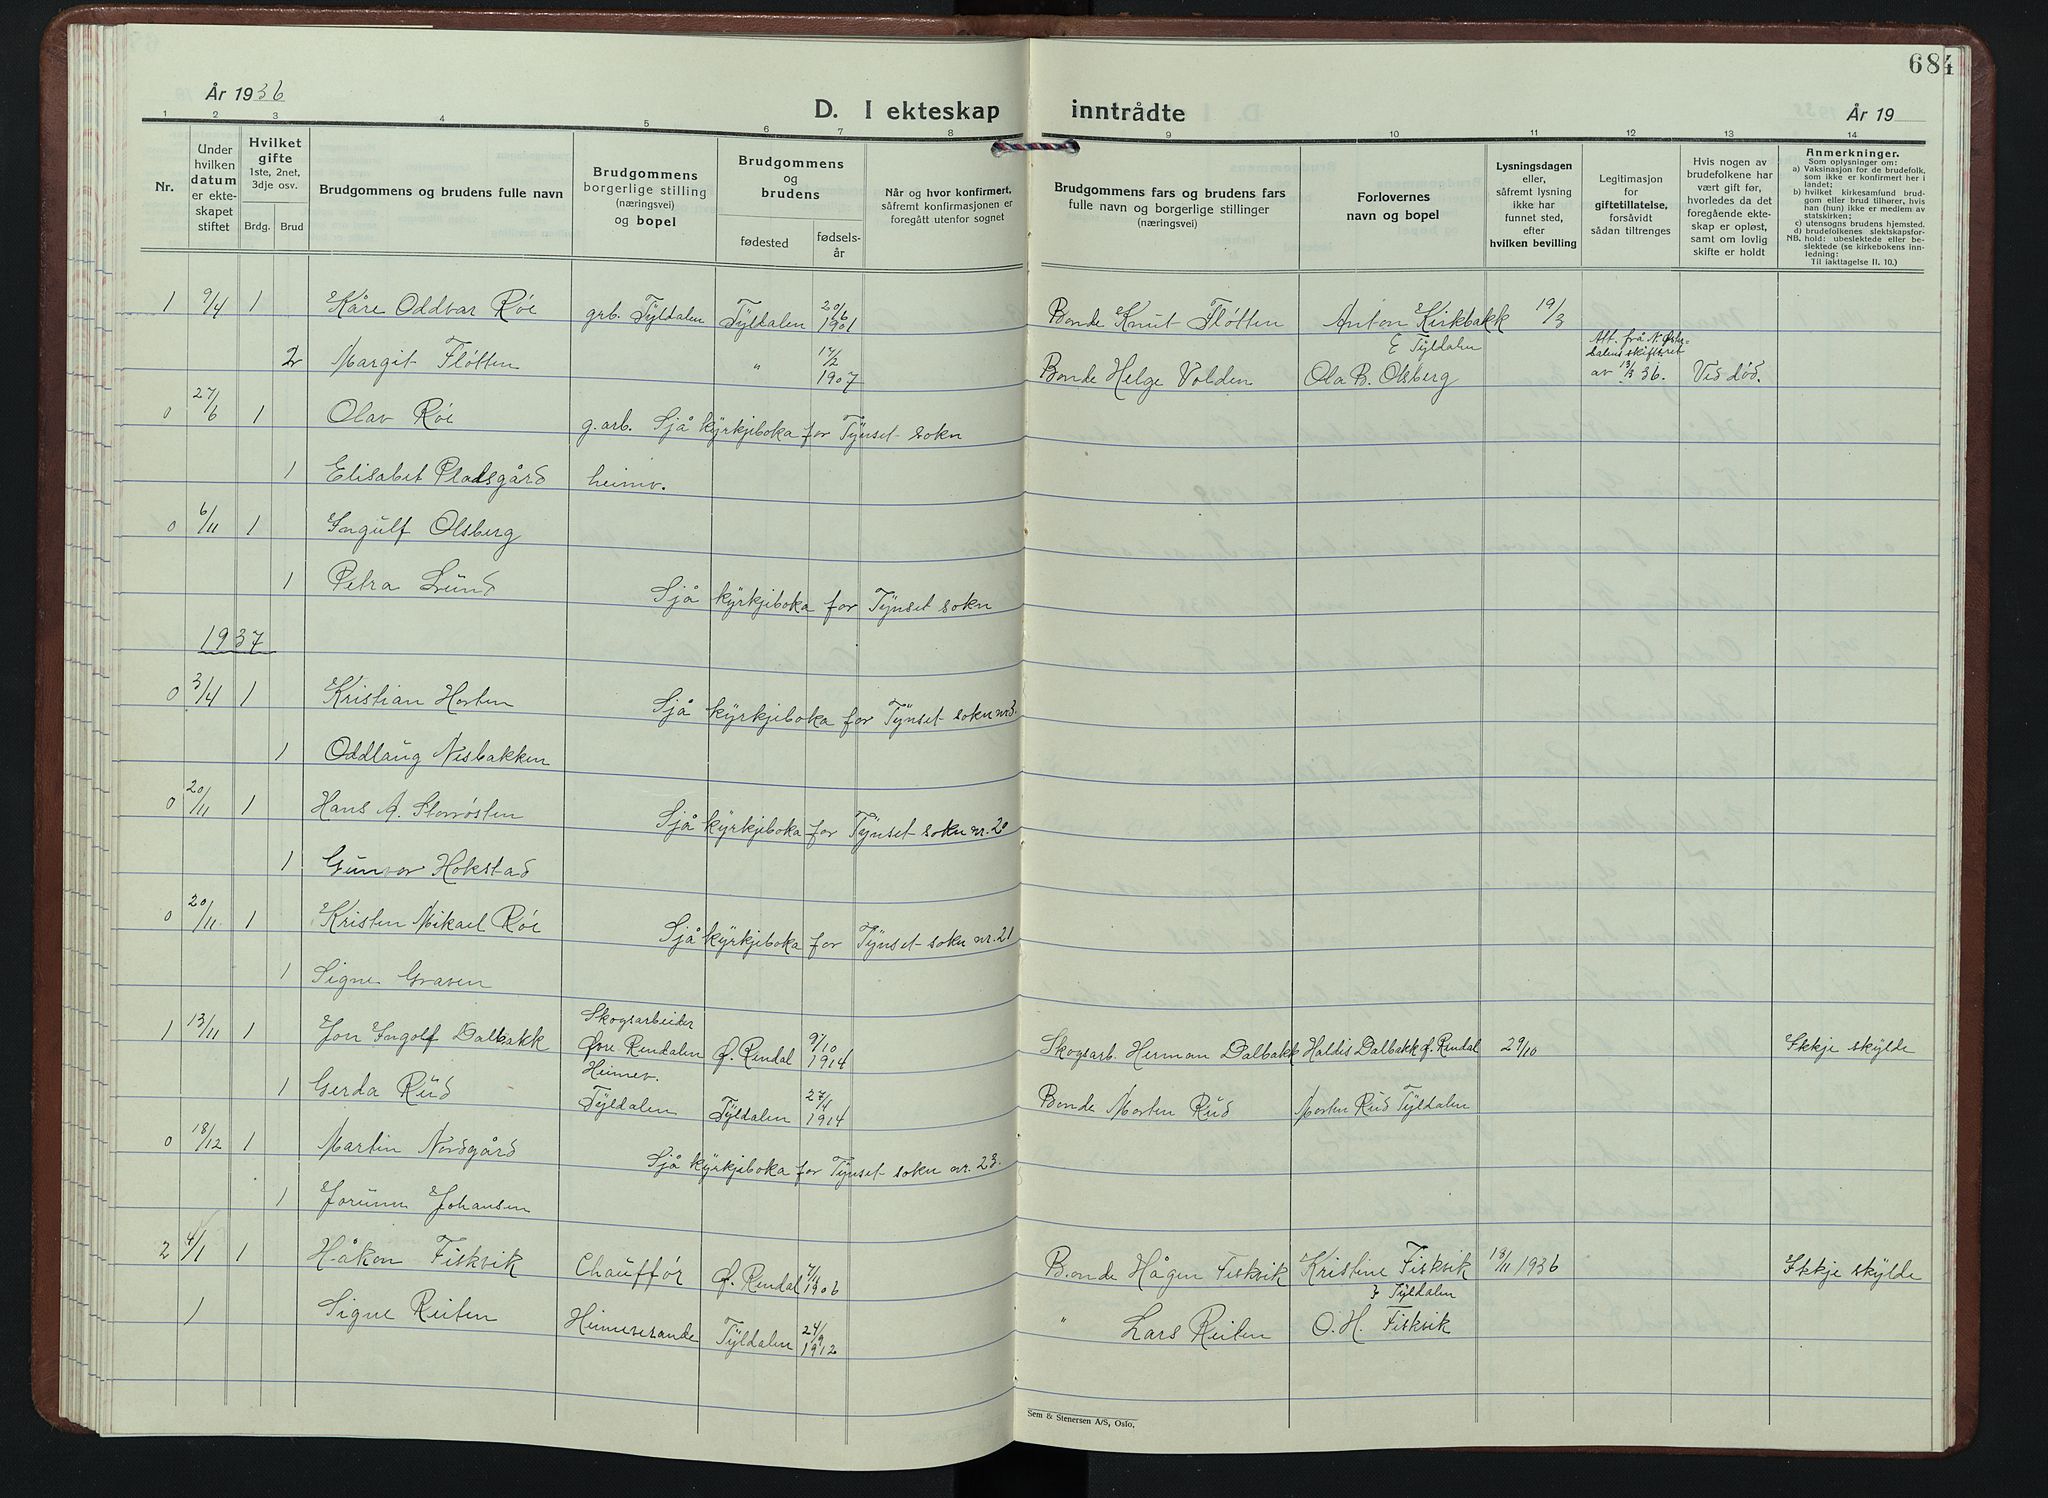 684
År 1936
D. I ekteskap inntrådte
År 19
1 2 3 4 5 6 7 8 9 10 11 12 13 14
Nr.
Under
hvilken
datum
er ekte-
skapet
stiftet
Hvilket
gifte
1ste, 2net,
3dje osv.
Brdg. Brud
Brudgommens og brudens fulle navn
Brudgommens
borgerlige stilling
(næringsvei)
og bopel
Brudgommens
og
brudens
fødested
fødsels-
år
Når og hvor konfirmert,
såfremt konfirmasjonen er
foregått utenfor sognet
Brudgommens fars og brudens fars
fulle navn og borgerlige stillinger
(næringsvei)
Forlovernes
navn og bopel
Lysningsdagen
eller,
såfremt lysning
ikke har
funnet sted,
efter
hvilken bevilling
Legitimasjon
for
giftetillatelse,
forsåvidt
sådan tiltrenges
Hvis nogen av
brudefolkene har
vært gift før,
hvorledes da det
foregående ekte-
skap er opløst,
samt om lovlig
skifte er holdt
Anmerkninger.
Som oplysninger om:
a) Vaksinasjon for de brudefolk,
som ikke er konfirmert her i
landet;
b) hvilket kirkesamfund brud-
gom eller brud tilhører, hvis
han (hun) ikke er medlem av
statskirken;
c) utensogns brudens hjemsted.
d) brudefolkenes slektskapsfor-
NB. hold: ubeslektede eller be-
slektede (se kirkebokens inn-
ledning:
Til iakttagelse II. 10.)
1 9/4 1 Kåre Oddvar Røe grb. Tyldalen Tyldalen 20/6 1901 Bonde Knut Fløtten Anton Kirkbakk 19/3
E Tyldalen
Att. frå N. Øster-
dalens skifteret
2 Margit Fløtten " 17/2 1907 Bonde Helge Volden Ola B. Olsberg av 13/3 36. Ved død.
0 27/6 1 Olav Røe g.arb. Sjå kyrkjeboka for Tynset sokn
1 Elisabet Pladsgård heimv.
0 6/11 1 Ingulf Olsberg
1 Petra Lund Sjå kyrkjeboka for Tynset sokn
1937
0 3/4 1 Kristian Horten Sjå kyrkjeboka for Tynset sokn nr 3.
1 Oddlaug Nesbakken
0 20/11 1 Hans A. Storrøsten Sjå kyrkjeboka for Tynset sokn nr. 20
1 Gunvor Hokstad
0 20/11 1 Kristen Mikael Røe Sjå kyrkjeboka for Tynset sokn nr. 21
1 Signe Graven
Skogsarbeider
1 13/11 1 Jon Ingolf Dalbakk Øvre Rendalen Ø. Rendal 9/10 1914 Skogsarb. Herman Dalbakk Haldis Dalbakk Ø. Rendal 29/10 Ikkje skylde
Heimev.
1 Gerda Rud Tyldalen Tyldalen 27/4 1914 Bonde Morten Rud Morten Rud Tyldalen
0 18/12 1 Martin Nordgård Sjå kyrkjeboka for Tynset sokn nr. 23.
1 Jorunn Johansen
2 4/1 1 Håkon Fiskvik Chauffør Ø. Rendal 7/4 1906 Bonde Hågen Fiskvik Kristine Fiskvik 18/11 1936 Ikkje skylde
Tyldalen
1 Signe Reiten Heimeverande Tyldalen 24/9 1912 " Lars Reiten O. H. Fiskvik
Sem & Stenersen A/S, Oslo.